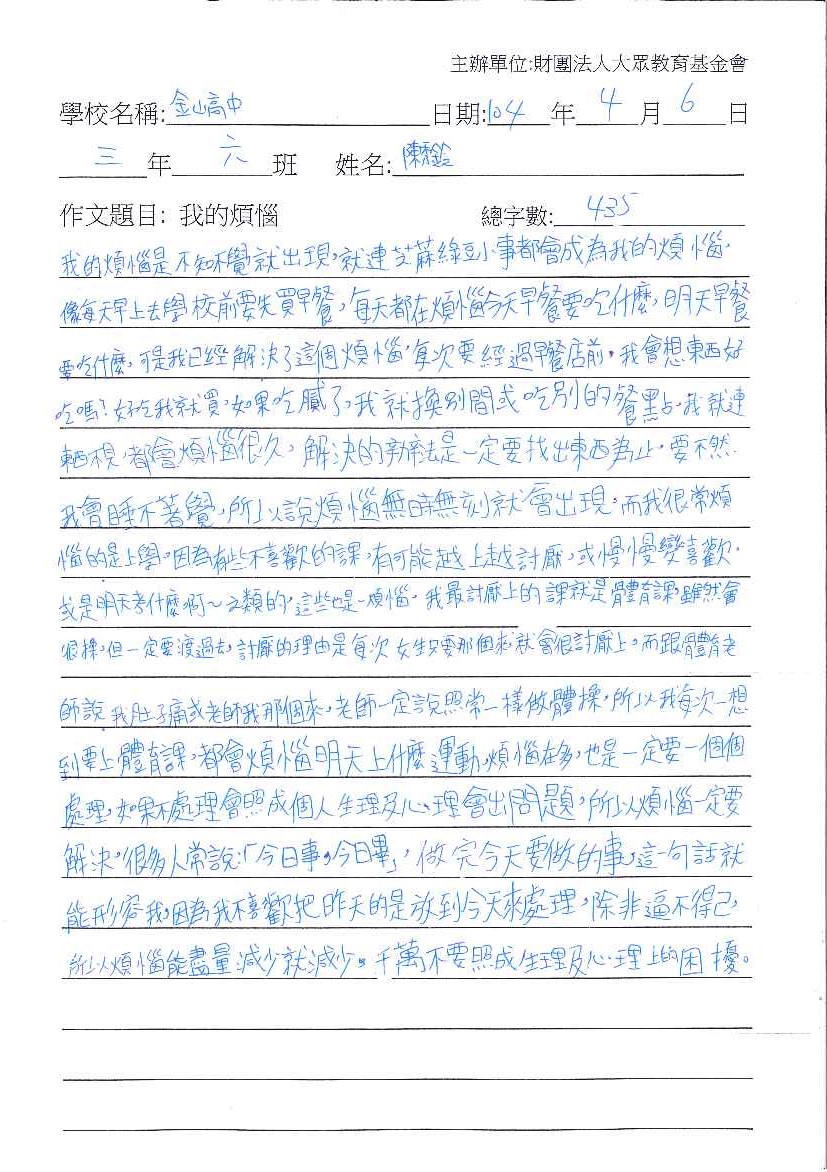 主辦單位:財團法人大眾教育基金會
學校名稱:金山高中 日期:104年4月6日
三年六班 姓名:陳
作文題目: 我的煩惱 總字數:435
我的煩惱是不知不覺就出現,就連芝麻綠豆小事都會成為我的煩惱,
像每天早上去學校前要先買早餐,每天都在煩惱今天早餐要吃什麼,明天早餐
要吃什麼,可是我已經解決了這個煩惱,每次要經過早餐店前,我會想東西好
吃嗎?好吃我就買,如果吃膩了,我就換別間或吃別的餐點,我就連
東西不見,都會煩惱很久,解決的辦法是一定要找出東西為止,要不然
我會睡不著覺,所以說煩惱無時無刻就會出現,而我很常煩
惱的是上學,因為有些不喜歡的課,有可能越上越討厭,或慢慢變喜歡,
或是明天考什麼啊~之類的,這些也是一煩惱,我最討厭上的課就是體育課,雖然會
很操,但一定要渡過去,討厭的理由是每次女生只要那個來,就會很討厭上,而跟體育老
師說我肚子痛或老師我那個來,老師一定說照常一樣做體操,所以我每次一想
到要上體育課,都會煩惱明天上什麼運動,煩惱在多,也是一定要一個個
處理,如果不處理會照成個人生理及心理會出問題,所以煩惱一定要
解決,很多人常說:「今日事,今日畢」,做完今天要做的事,這一句話就
能形容我,因為我不喜歡把昨天的是放到今天來處理,除非逼不得已,
所以煩惱能盡量減少就減少,千萬不要照成生理及心理上的困擾。